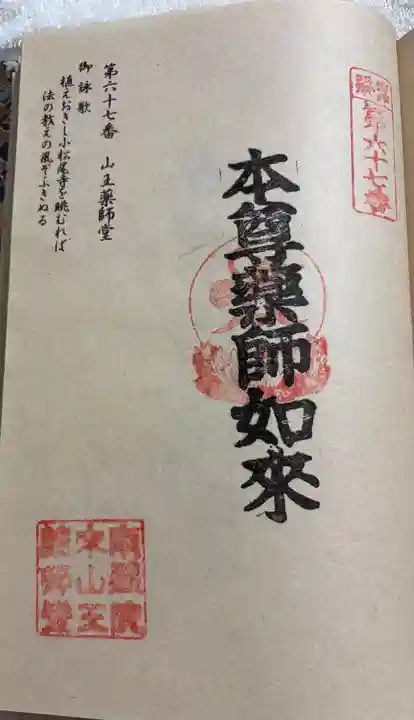 第六十七番
本尊薬師如来
第六十七番　山王薬師堂
御詠歌
植えおきし小松尾寺を眺むれば
法の教えの風ぞふきぬる
薬師堂